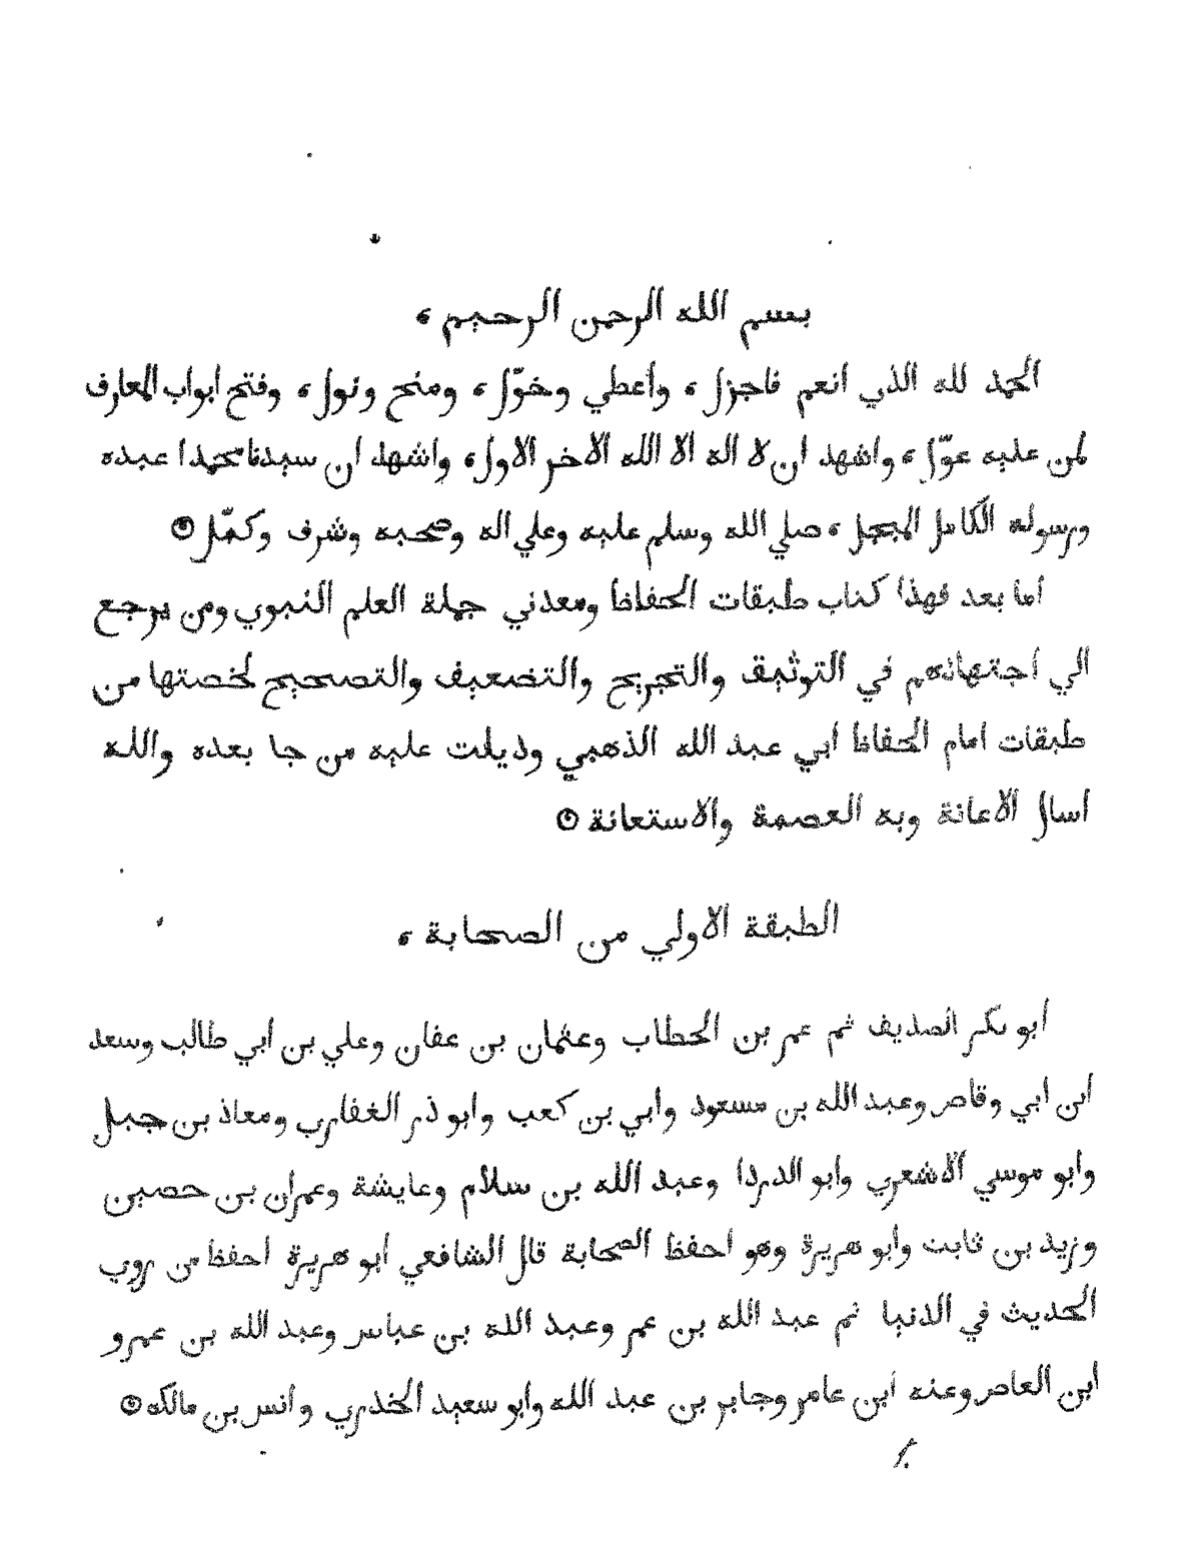 بسم الله الرحمن الرحيم ،
الحمد لله الذي انعم فاجزل ، وأعطي وخوّل ، ومنح ونول ، وفتح ابواب المعارف
لمن عليه عوّل ، واشهد ان لا اله الا الله الاخر الاول ، واشهد ان سيدنا محمدا عبده
ورسوله الكامل المبجل ، صلي الله وسلم عليه وعلي اله وصحبه وشرف وكمّل
اما بعد فهذا كتاب طبقات الحفاظ ومعدني جملة العلم النبوي ومن يرجع
الي اجتهادهم في التوثيق والتجريح والتضعيف والتصحيح لخصتها من
طبقات امام الحفاظ ابي عبد الله الذهبي وذيلت عليه من جا بعده والله
اسال الاعانة وبه العصمة والاستعانة
الطبقة الاولي من الصحابة ،
أبو بكر الصديف ثم عمر بن الخطاب وعثمان بن عفان وعلي بن أبي طالب وسعد
ابن ابي وقاص وعبد الله بن مسعود وأبي بن كعب وابو ذر الغفاري ومعاذ بن جبل
وابو موسي الاشعري وابو الدردا وعبد الله بن سلام وعايشة وعمران بن حصين
وزيد بن ثابت وابو هريرة وهو احفظ الصحابة قال الشافعي ابو هريرة احفظ من روي
الحديث في الدنيا ثم عبد الله بن عمر وعبد الله بن عباس وعبد الله بن عمرو
ابن العاص وعنه ابن عامر وجابر بن عبد الله وابو سعيد الخدري وانس بن مالك